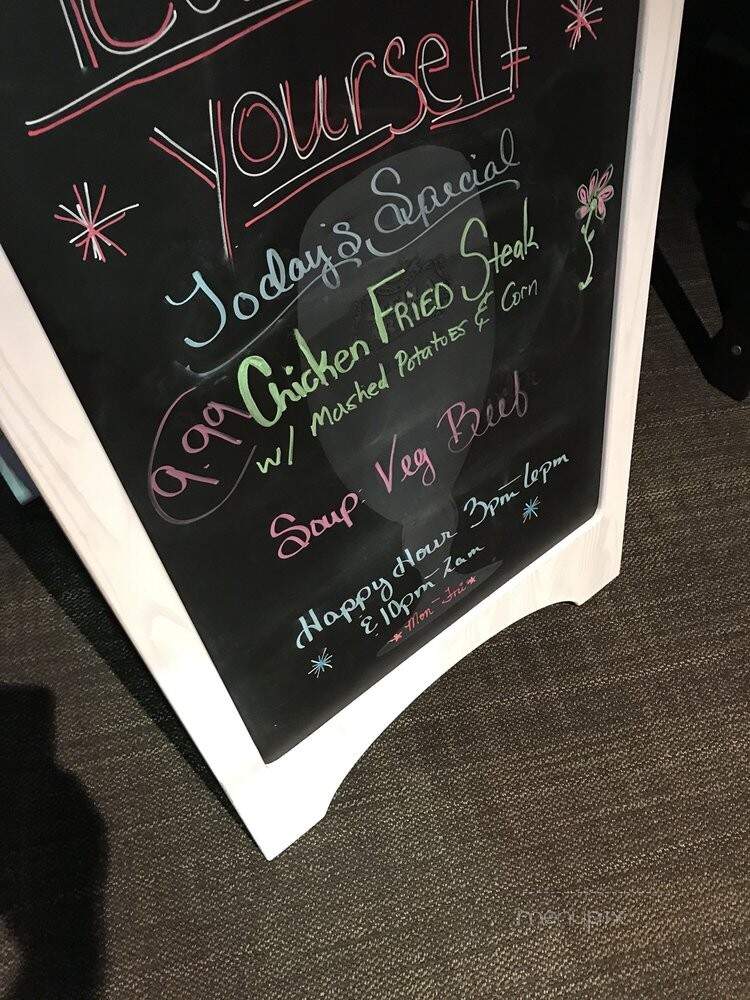 yourself
Today's Special
Chicken Fried Steak
w/ Mashed Potatoes & Corn
9.99
Soup: Veg Beef
Happy Hour 3pm-6pm
& 10pm-2am
*Mon-Fri*
menupix